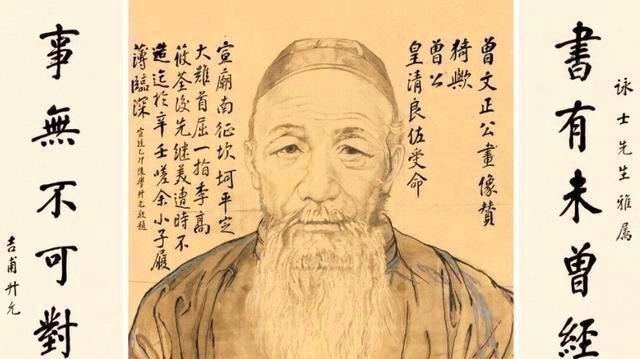 詠士先生雅属
書有未曾經
曾文正公畫像贊
猗歟
曾公
皇清良佐受命
宣廟南征坎坷平定
大難首屈一指李高
筱荃後先繼美遭時不
造迄於辛壬嗟余小子履
薄臨深
宣統乙卯後學升允敬題
事無不可對
吉甫升允